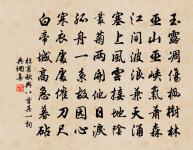 玉露凋傷楓樹林
巫山巫峽氣蕭森
江間波浪兼天湧
塞上風雲接地陰
叢菊兩開他日淚
孤舟一系故園心
寒衣處處催刀尺
白帝城高急暮砧
杜甫秋興八首其一詞
典網集